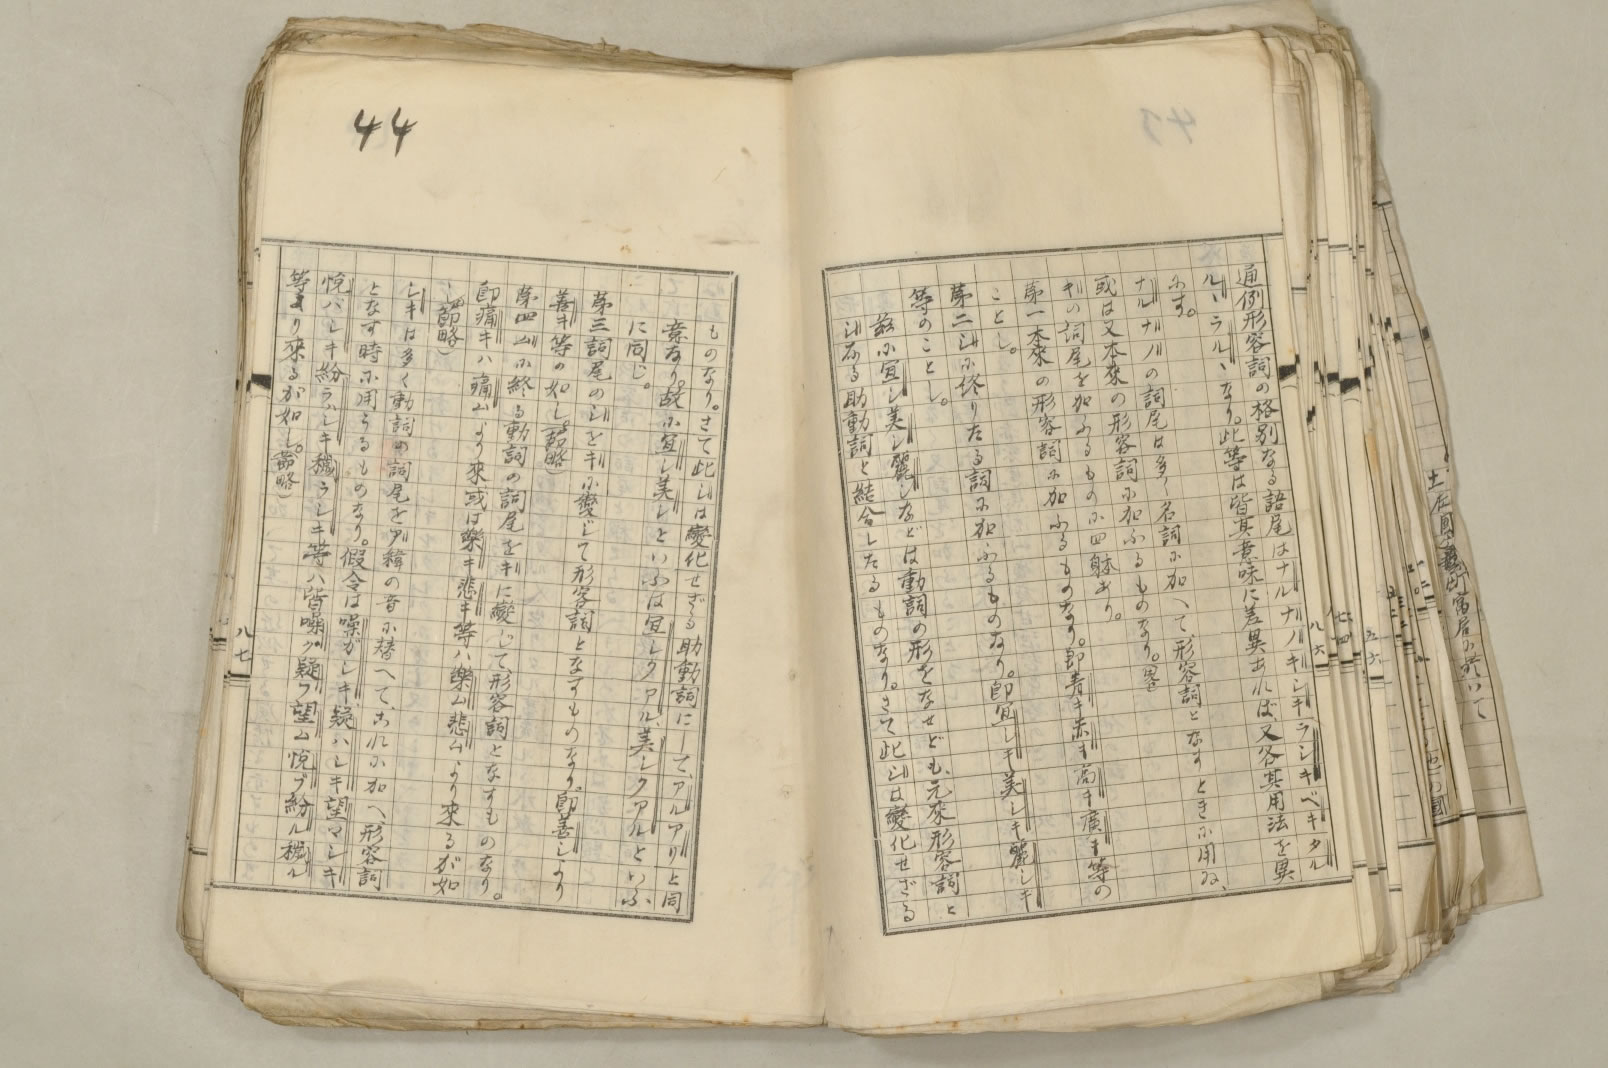 通例形容詞の格別なる語尾はナルナノキシキランキベキタル
ル、ラル、なり。此等は皆其意味に差異あれば、又各其用法を異
にす。
ナルナノの詞尾は多く名詞に加へて形容詞となすときに用ゐ、
或は又本來の形容詞に加ふるものなり。畧
キの詞尾を加ふるものに四躰あり。
第一本來の形容詞に加ふるものなり。即青キ赤キ高キ廣キ等の
ことし。
第二シに終りたる詞に加ふるものなり。即宜シキ美シキ麗シキ
等のことし。
茲に宜シ美シ麗シなどは動詞の形をなせども、元來形容詞と
シなる助動詞と結合したるものなり。さて此シは變化せざる
八六
44
ものなり。さて此シは變化せざる助動詞にして、アルアリと同
意なり。故に宜シ美シといふは宜シクアル、美シクアルといふ
に同じ。
第三詞尾のシをキに變じて形容詞となすものなり。即善シより
善キ等の如し。(節略)
第四ムに終る動詞の詞尾をキに變じて形容詞となすものなり。
即痛キハ痛ムより來或は樂キ悲キ等ハ樂ム悲ムより來るが如
し(節略)
シキは多く動詞の詞尾をア緯の音に替へて、之れに加へ、形容詞
となす時に用うるものなり。假令は噪ガシキ、疑ハシキ望マシキ
悅バシキ紛ラハシキ穢ラシキ等ハ皆噪グ疑フ望ム悅ブ紛ル穢ル
等より來るが如し。(節略)
八七
七四
五六